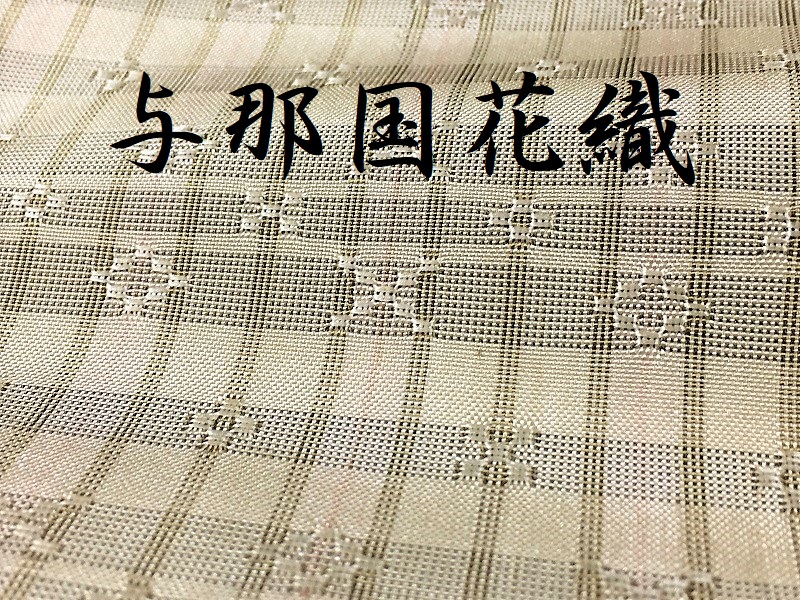 与那国花織